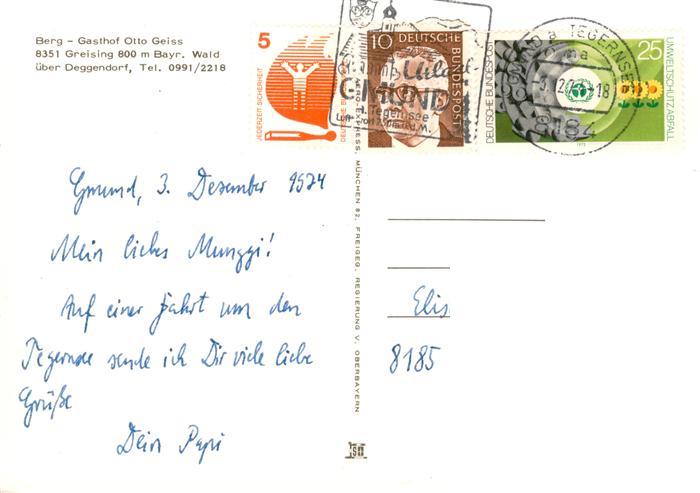 Berg – Gasthof Otto Geiss
8351 Greising 800 m Bayr. Wald
über Deggendorf, Tel. 0991/2218
5
JEDERZEIT SICHERHEIT
DEUTSCHE BU
10
DEUTSCHE
BUNDESPOST
25
DEUTSCHE BUNDESPOST
UMWELTSCHUTZ: ABFALL
1973
GMUND
a. Tegernsee
GMUND a TEGERNSEE
-18
8184
AERO-EXPRESS, MÜNCHEN 82, FREIGEG. REGIERUNG V. OBERBAYERN
Gmund, 3. Dezember 1974
Mein liebes Munggi!
Auf einer Fahrt um den
Tegernsee sende ich Dir viele liebe
Grüße
Dein Papi
Elis
8185